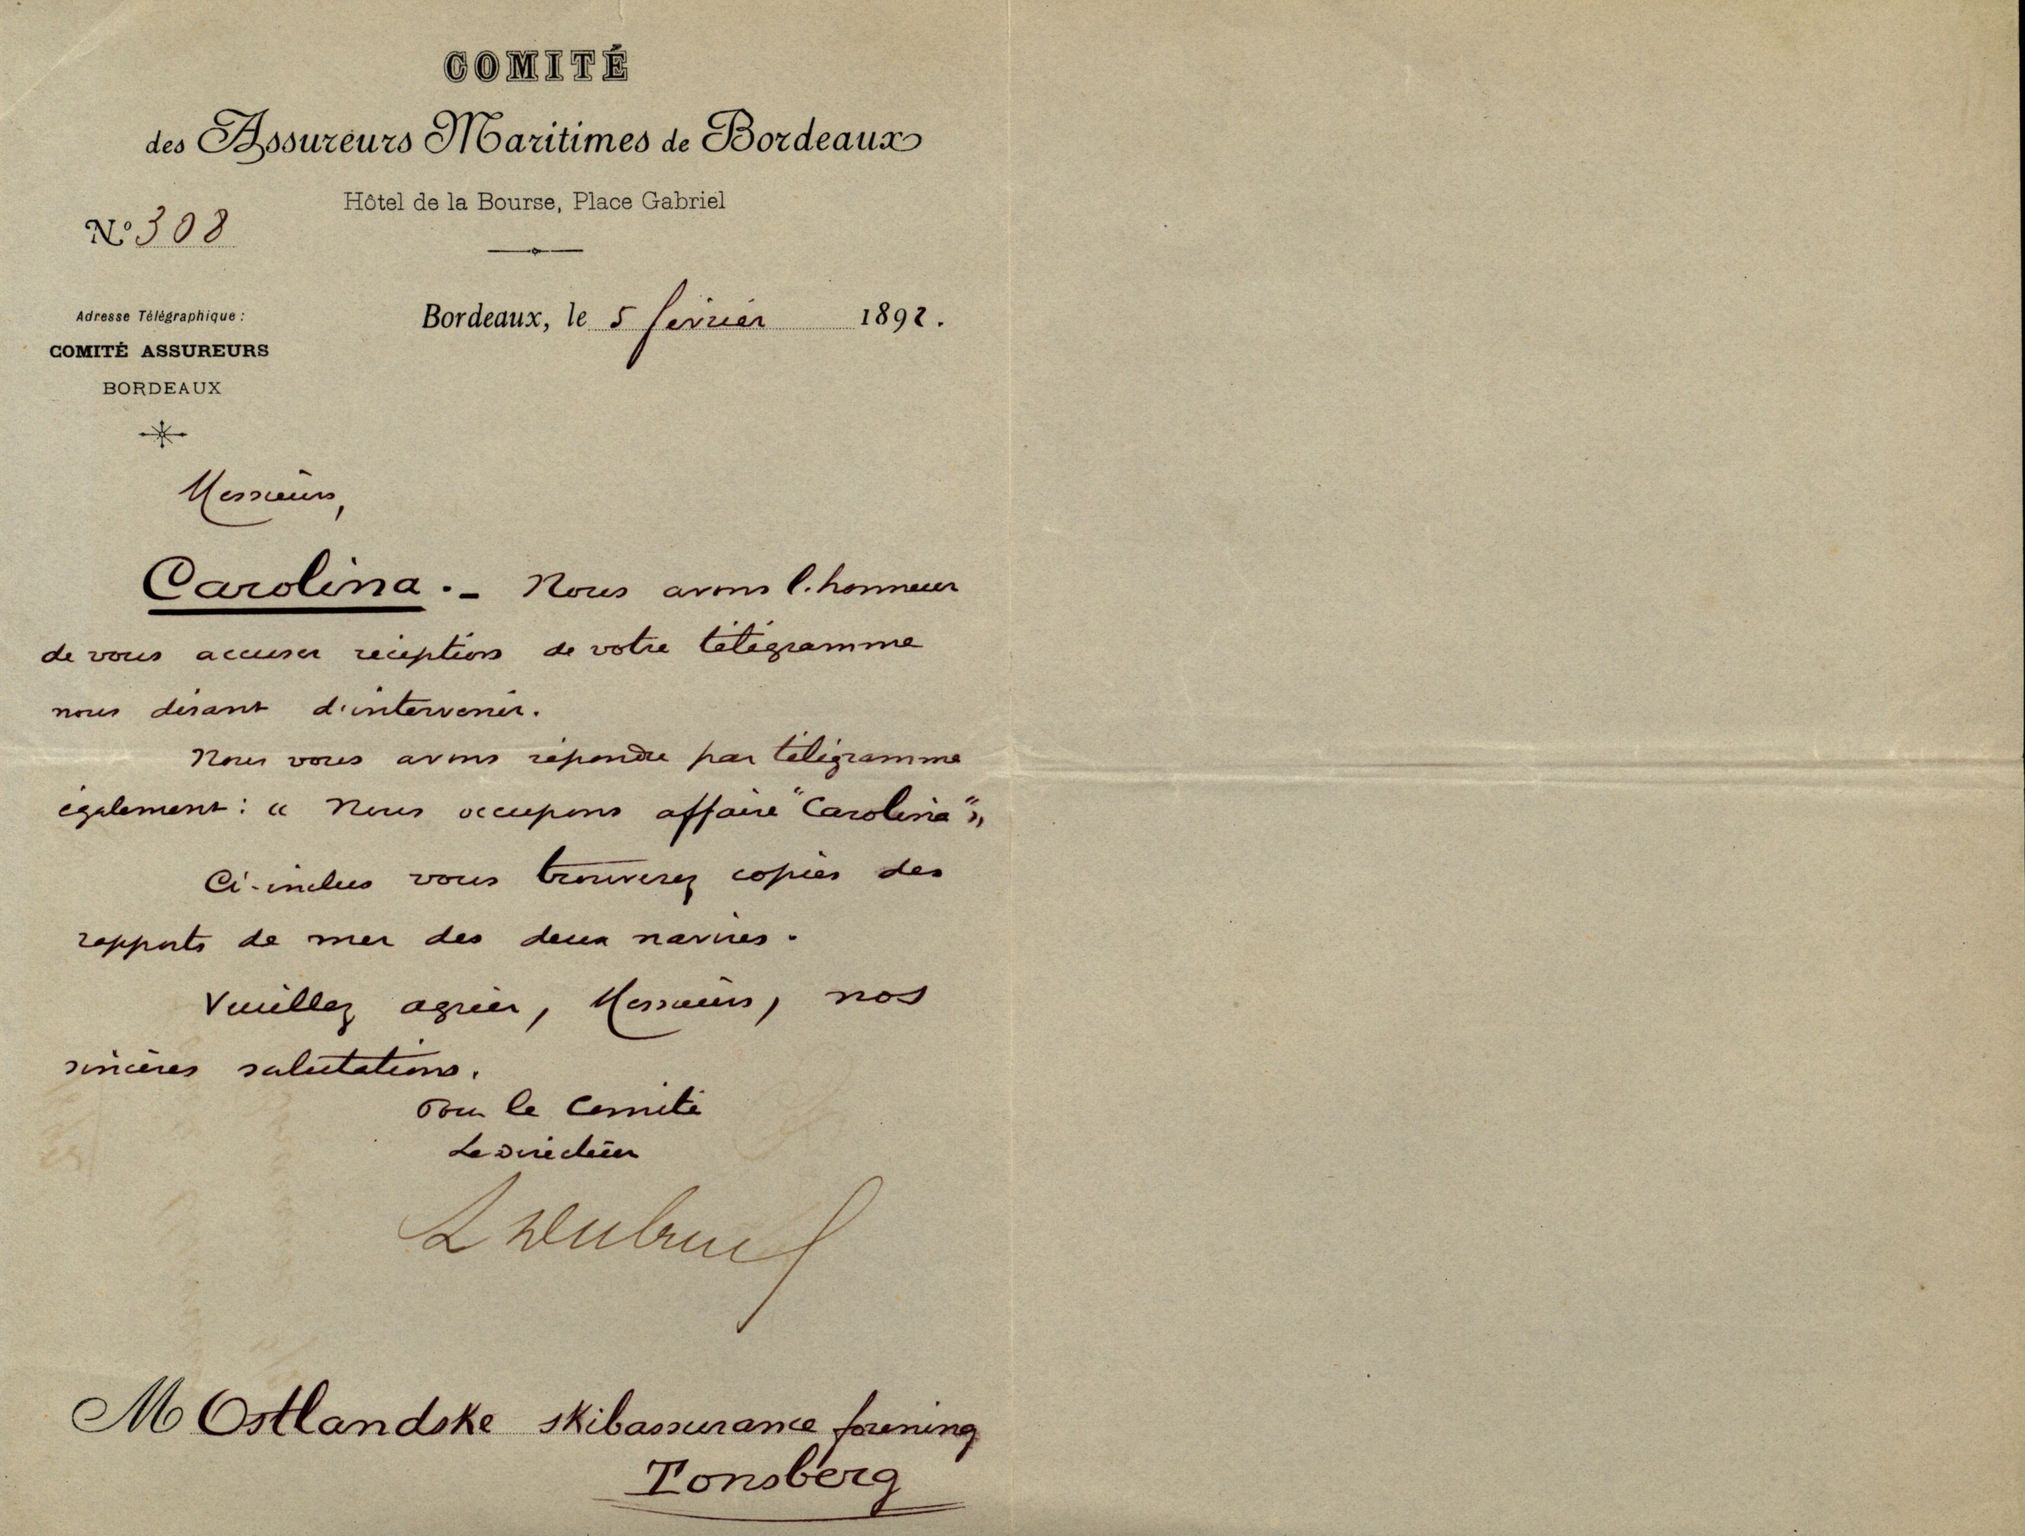 COMITÉ
des Assureurs Maritimes de Bordeaux
Hôtel de la Bourse, Place Gabriel
No 308
Bordeaux, le 5 février 1892.
Adresse Télégraphique :
COMITÉ ASSUREURS
BORDEAUX
Messieurs,
Carolina. — Nous avons l'honneur
de vous accuser réception de votre télégramme
nous disant d'intervenir.
Nous vous avons répondu par télégramme
également : « Nous occupons affaire "Carolina" »
Ci-inclus vous trouverez copies des
rapports de mer des deux navires.
Veuillez agréer, Messieurs, nos
sincères salutations.
Pour le Comité
Le Directeur
M Ostlandske skibassurance forening
Tonsberg